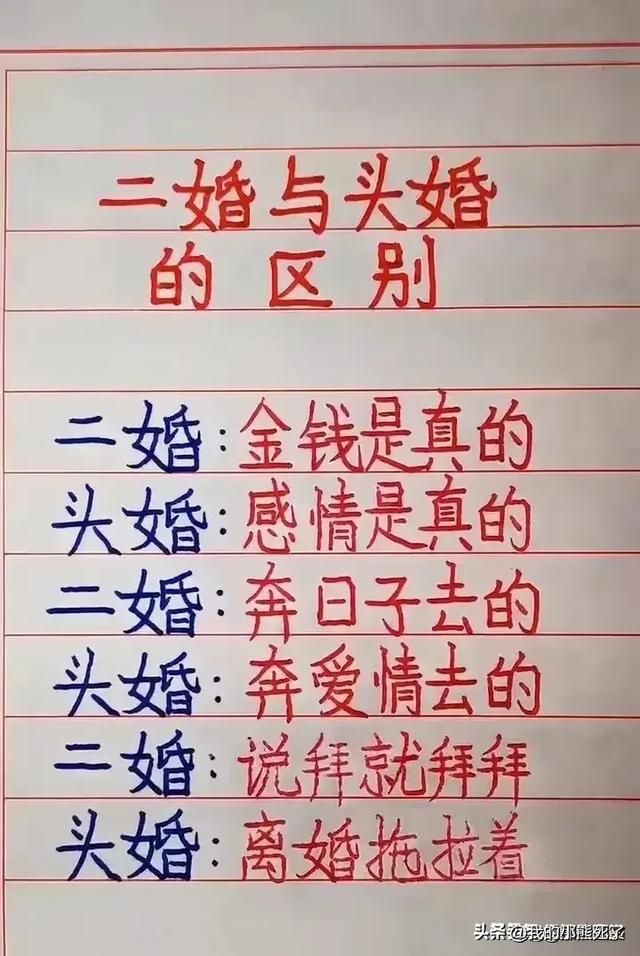 二婚与头婚
的区别
二婚:金钱是真的
头婚:感情是真的
二婚:奔日子去的
头婚:奔爱情去的
二婚:说拜就拜拜
头婚:离婚拖拉着
头条 @我的那熊死了